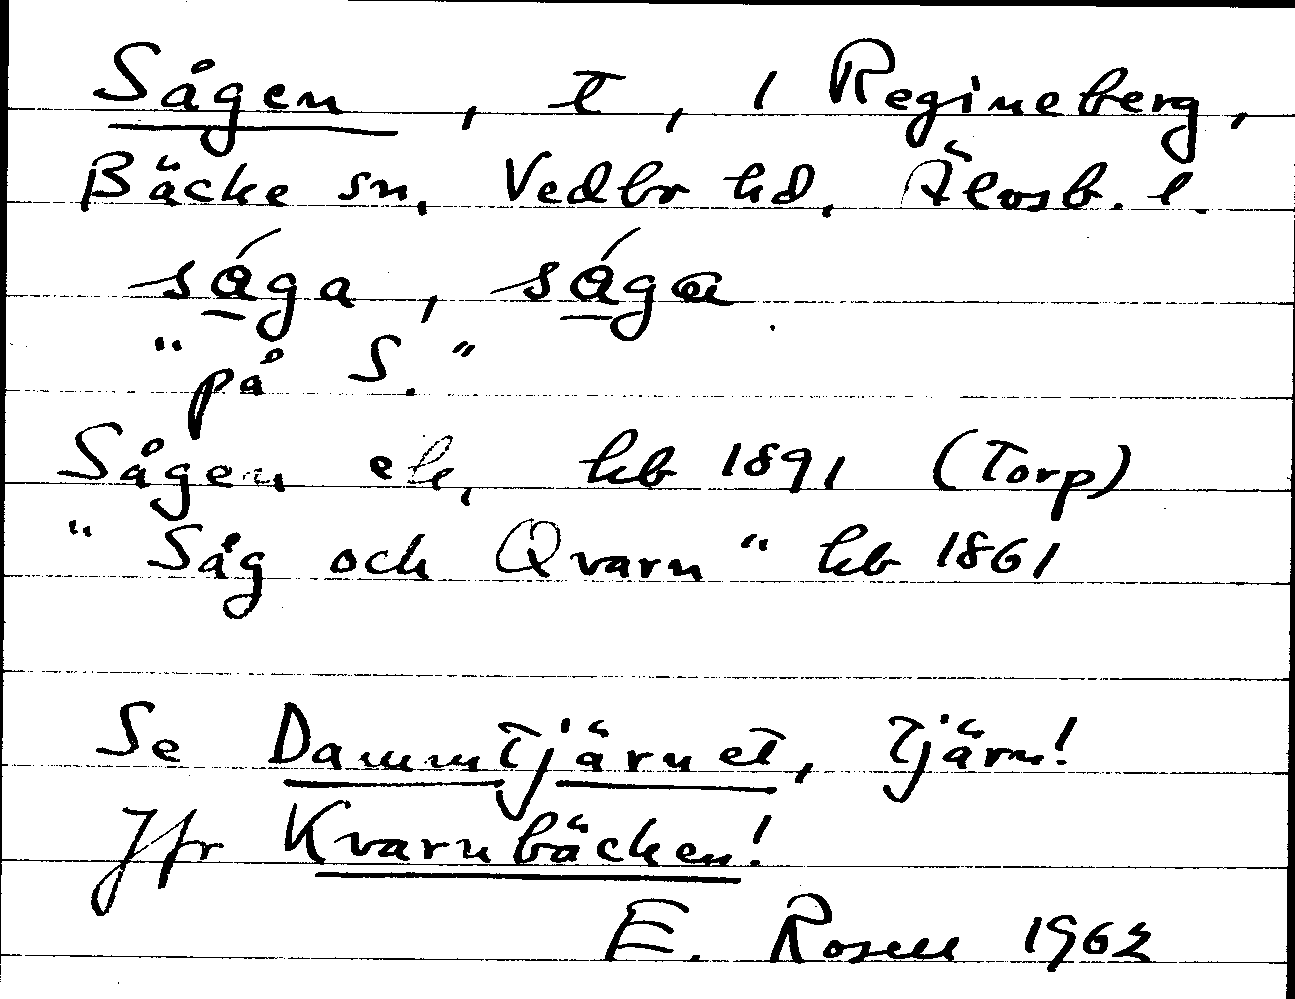 Sågen, t, 1 Regineberg,
Bäcke sn, Vedbo hd, Älvsb. l.
såga, såga
"på S."
Sågen ek, kb 1891 (Torp)
"Såg och Qvarn" kb 1861
Se Dammtjärnet, tjärn!
Jfr Kvarnbäcken!
E. Rosell 1962